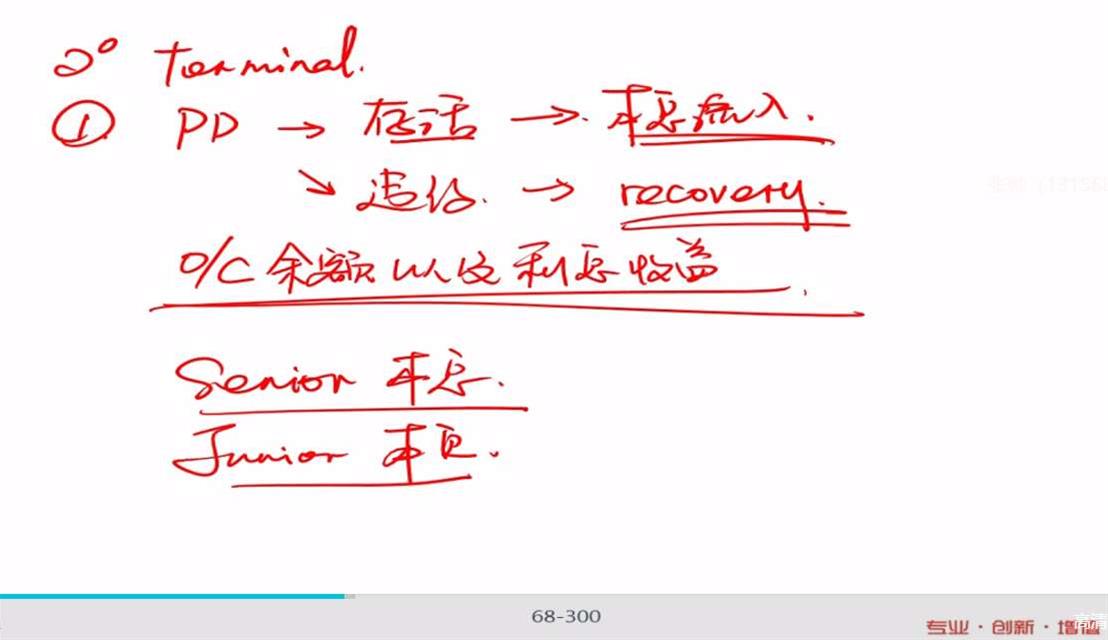 2° terminal.
① PD → 存活 → 本息流入.
↘ 违约. → recovery.
O/C 余额以及利息收益.
Senior 本息.
Junior 本息.
68-300
专业·创新·增值
高清